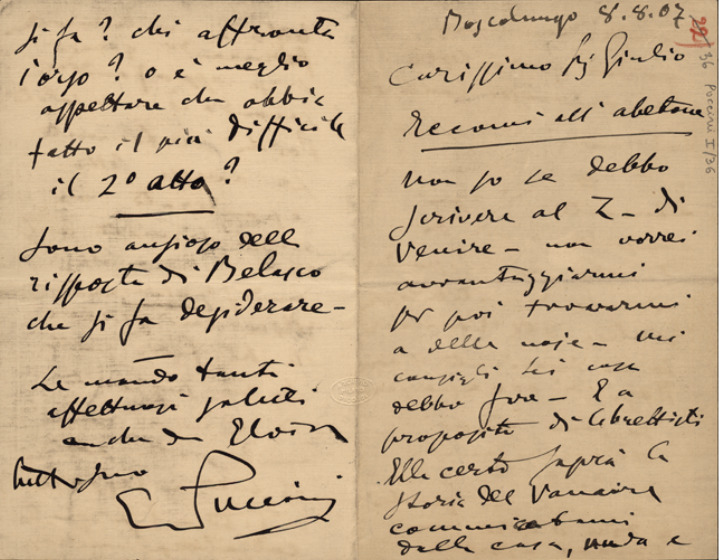 Boscolungo 8.8.07
Carissimo Sig Giulio
Eccomi all' abetone
non so se debbo
scrivere al Z - di
venire - non vorrei
avvantaggiarmi
per poi trovarmi
a delle noje - mi
consigli Lei cosa
debbo fare - E a
proposito di librettisti
Elle certo saprà la
storia del Vaucaire
communicatami
dalla casa, nuda e
si fa? chi affronta
l'orso? o è meglio
aspettare che abbia
fatto il più difficile
il 2º atto?
Sono ansioso della
risposta di Belasco
che si fa desiderare -
Le mando tanti
affettuosi saluti
anche da Elvira
tutto suo
Puccini
36 Puccini I/36